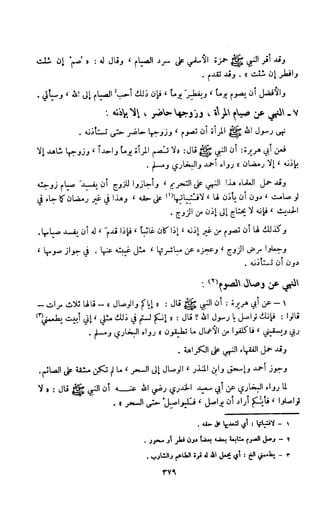 وقد أقر النبي ﷺ حمزة الأسلمي على سرد الصيام ، وقال له : « صم إن شئت
وافطر إن شئت » . وقد تقدم .
والأفضل أن يصوم يوماً ، ويفطر يوماً ، فإن ذلك أحب الصيام إلى الله ، وسيأتي .
٧ - النهي عن صيام المرأة ، وزوجها حاضر ، إلا بإذنه :
نهى رسول الله ﷺ المرأة أن تصوم ، وزوجها حاضر حتى تستأذنه .
فعن أبي هريرة : أن النبي ﷺ قال : « لا تصم المرأة يوماً واحداً ، وزوجها شاهد إلا
بإذنه ، إلا رمضان » رواه أحمد والبخاري ومسلم .
وقد حمل العلماء هذا النهي على التحريم ، وأجازوا للزوج أن يفسد صيام زوجته
لو صامت ، دون أن يأذن لها ، لافتياتها (١) على حقه ، وهذا في غير رمضان كما جاء في
الحديث ، فإنه لا يحتاج إلى إذن من الزوج .
وكذلك لها أن تصوم من غير إذنه ، إذا كان غائباً ، فإذا قدم ، له أن يفسد صيامها .
وجعلوا مرض الزوج ، وعجزه عن مباشرتها ، مثل غيبته عنها . في جواز صومها ،
دون أن تستأذنه .
النهي عن وصال الصوم (٢) :
١ - عن أبي هريرة : أن النبي ﷺ قال : « إياكم والوصال » - قالها ثلاث مرات -
قالوا : فإنك تواصل يا رسول الله ؟ قال : « إنكم لستم في ذلك مثلي ، إني أبيت يطعمني (٣)
ربي ويسقيني ، فاكلفوا من الأعمال ما تطيقون » رواه البخاري ومسلم .
وقد حمل الفقهاء النهي على الكراهة .
وجوز أحمد وإسحق وابن المنذر ، الوصال إلى السحر ، ما لم تكن مشقة على الصائم .
لما رواه البخاري عن أبي سعيد الخدري رضي الله عنه أن النبي ﷺ قال : « لا
تواصلوا ، فأيكم أراد أن يواصل ، فليواصل حتى السحر » .
١ - لافتياتها : أي لتعديها على حقه .
٢ - وصل الصوم متابعة بعضه بعضاً دون فطر أو سحور .
٣ - يطعمني الخ : أي يجعل الله له قوة الطاعم والشارب .
٣٧٩